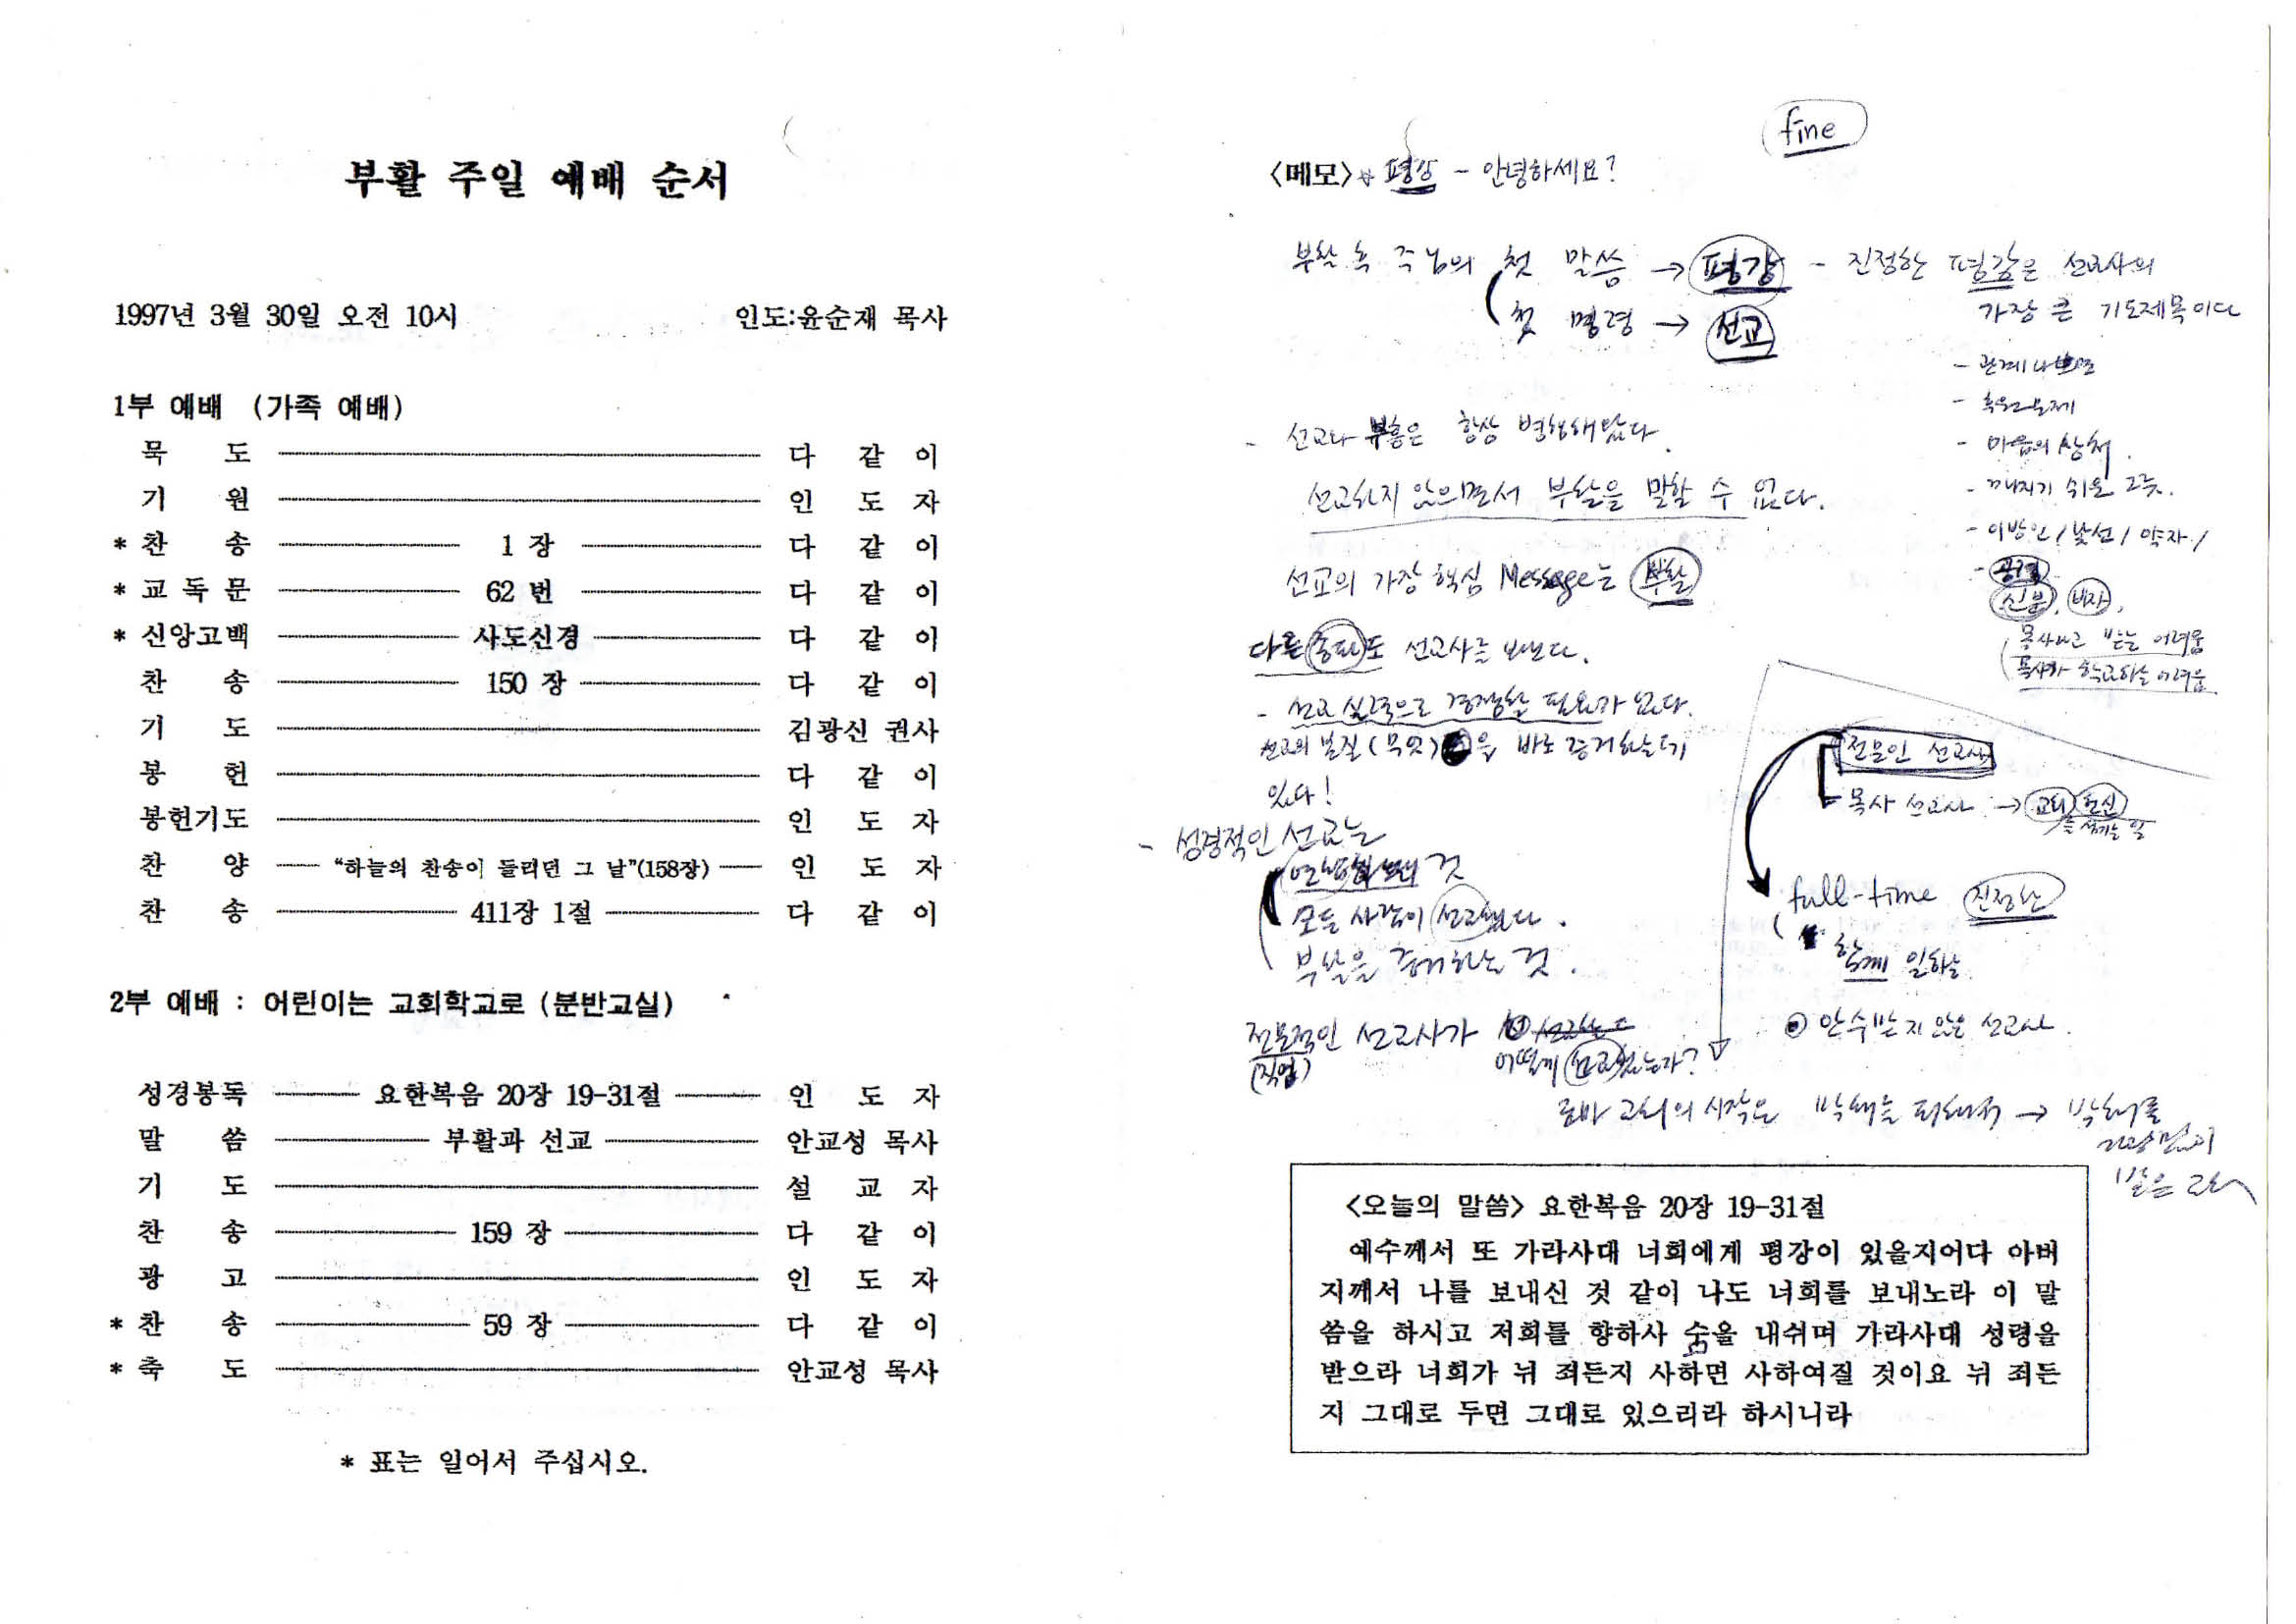 부활 주일 예배 순서
1997년 3월 30일 오전 10시 인도:윤순재 목사
1부 예배 (가족 예배)
묵 도 다 같 이
기 원 인 도 자
* 찬 송 1 장 다 같 이
* 교 독 문 62 번 다 같 이
* 신앙고백 사도신경 다 같 이
찬 송 150 장 다 같 이
기 도 김광신 권사
봉 헌 다 같 이
봉헌기도 인 도 자
찬 양 “하늘의 찬송이 들리던 그 날”(158장) 인 도 자
찬 송 411장 1절 다 같 이
2부 예배 : 어린이는 교회학교로 (분반교실)
성경봉독 요한복음 20장 19-31절 인 도 자
말 씀 부활과 선교 안교성 목사
기 도 설 교 자
찬 송 159 장 다 같 이
광 고 인 도 자
* 찬 송 59 장 다 같 이
* 축 도 안교성 목사
* 표는 일어서 주십시오.
fine
<메모> 평상 - 안녕하세요?
부활 후 주님의 첫 말씀 → 평강 - 진정한 평강은 선교사의
가장 큰 기도제목이다
첫 명령 → 선교
- 후원문제
- 마음의 상처
- 깨지기 쉬운 그릇.
- 이방인 / 낯선 / 약자 /
신분, 비자,
목사 받는 어려움
목사가 학교하는 어려움
- 선교와 부흥은 항상 병행해 왔다.
선교하지 않으면서 부활을 말할 수 없다.
선교의 가장 핵심 Message는 부활
다른 종파도 선교사를 보낸다.
- 선교 실적으로 경쟁할 필요가 없다.
선교의 본질(무엇)을 바로 증거하는데
있다!
- 성경적인 선교는
것
모든 사람이 선교한다.
부활을 증거하는 것.
전문적인 선교사가
(직업) 어떻게 선교했는가?
전문인 선교사
목사 선교사 → 교회 헌신
를 섬기는 일
full-time 진정한
함께 일하는
안수받지 않은 선교사.
로마 교회의 시작은 박해를 피해서 → 박해를
받은 교회
<오늘의 말씀> 요한복음 20장 19-31절
예수께서 또 가라사대 너희에게 평강이 있을지어다 아버
지께서 나를 보내신 것 같이 나도 너희를 보내노라 이 말
씀을 하시고 저희를 향하사 숨을 내쉬며 가라사대 성령을
받으라 너희가 뉘 죄든지 사하면 사하여질 것이요 뉘 죄든
지 그대로 두면 그대로 있으리라 하시니라